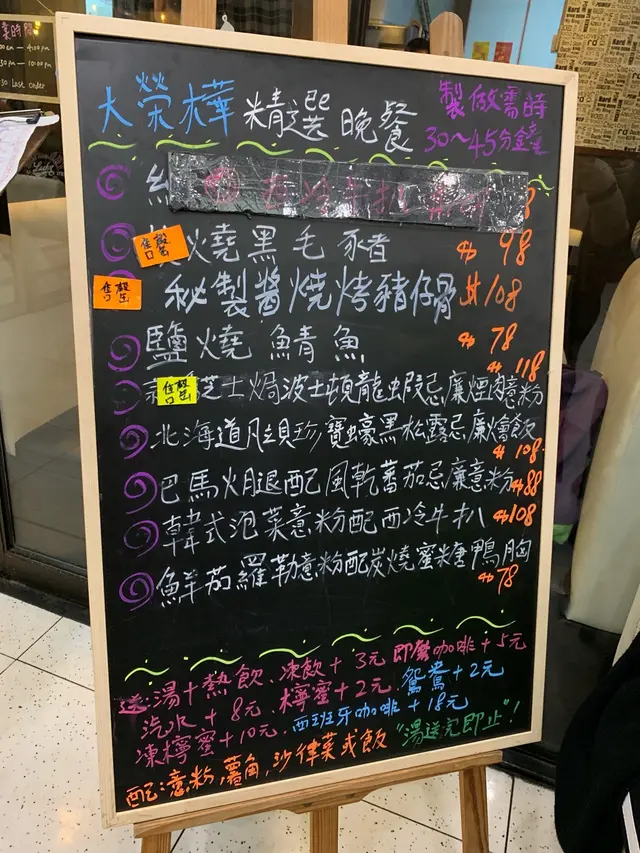 業時間
00am - 4:00pm
:30pm - 10:00pm
:30 last order
大榮樺 精選晚餐
製做需時
30～45分鐘
售罄
火燒黑毛豬 $98
售罄
秘製醬燒烤豬仔骨 $108
鹽燒鯖魚 $78
$118
售罄
芝士焗波士頓龍蝦忌廉煙肉意粉
北海道凡貝珍寶蠔黑松露忌廉燴飯
$108
巴馬火腿配風乾蕃茄忌廉意粉 $88
韓式泡菜意粉配西冷牛扒 $108
鮮茄羅勒意粉配炭燒蜜糖鴨胸
$78
送：湯＋熱飲、凍飲＋3元 即磨咖啡＋5元
汽水＋8元、檸蜜＋2元、鴛鴦＋2元
凍檸蜜＋10元、西班牙咖啡＋18元
配：意粉，薯角，沙律菜或飯 "湯送完即止"！